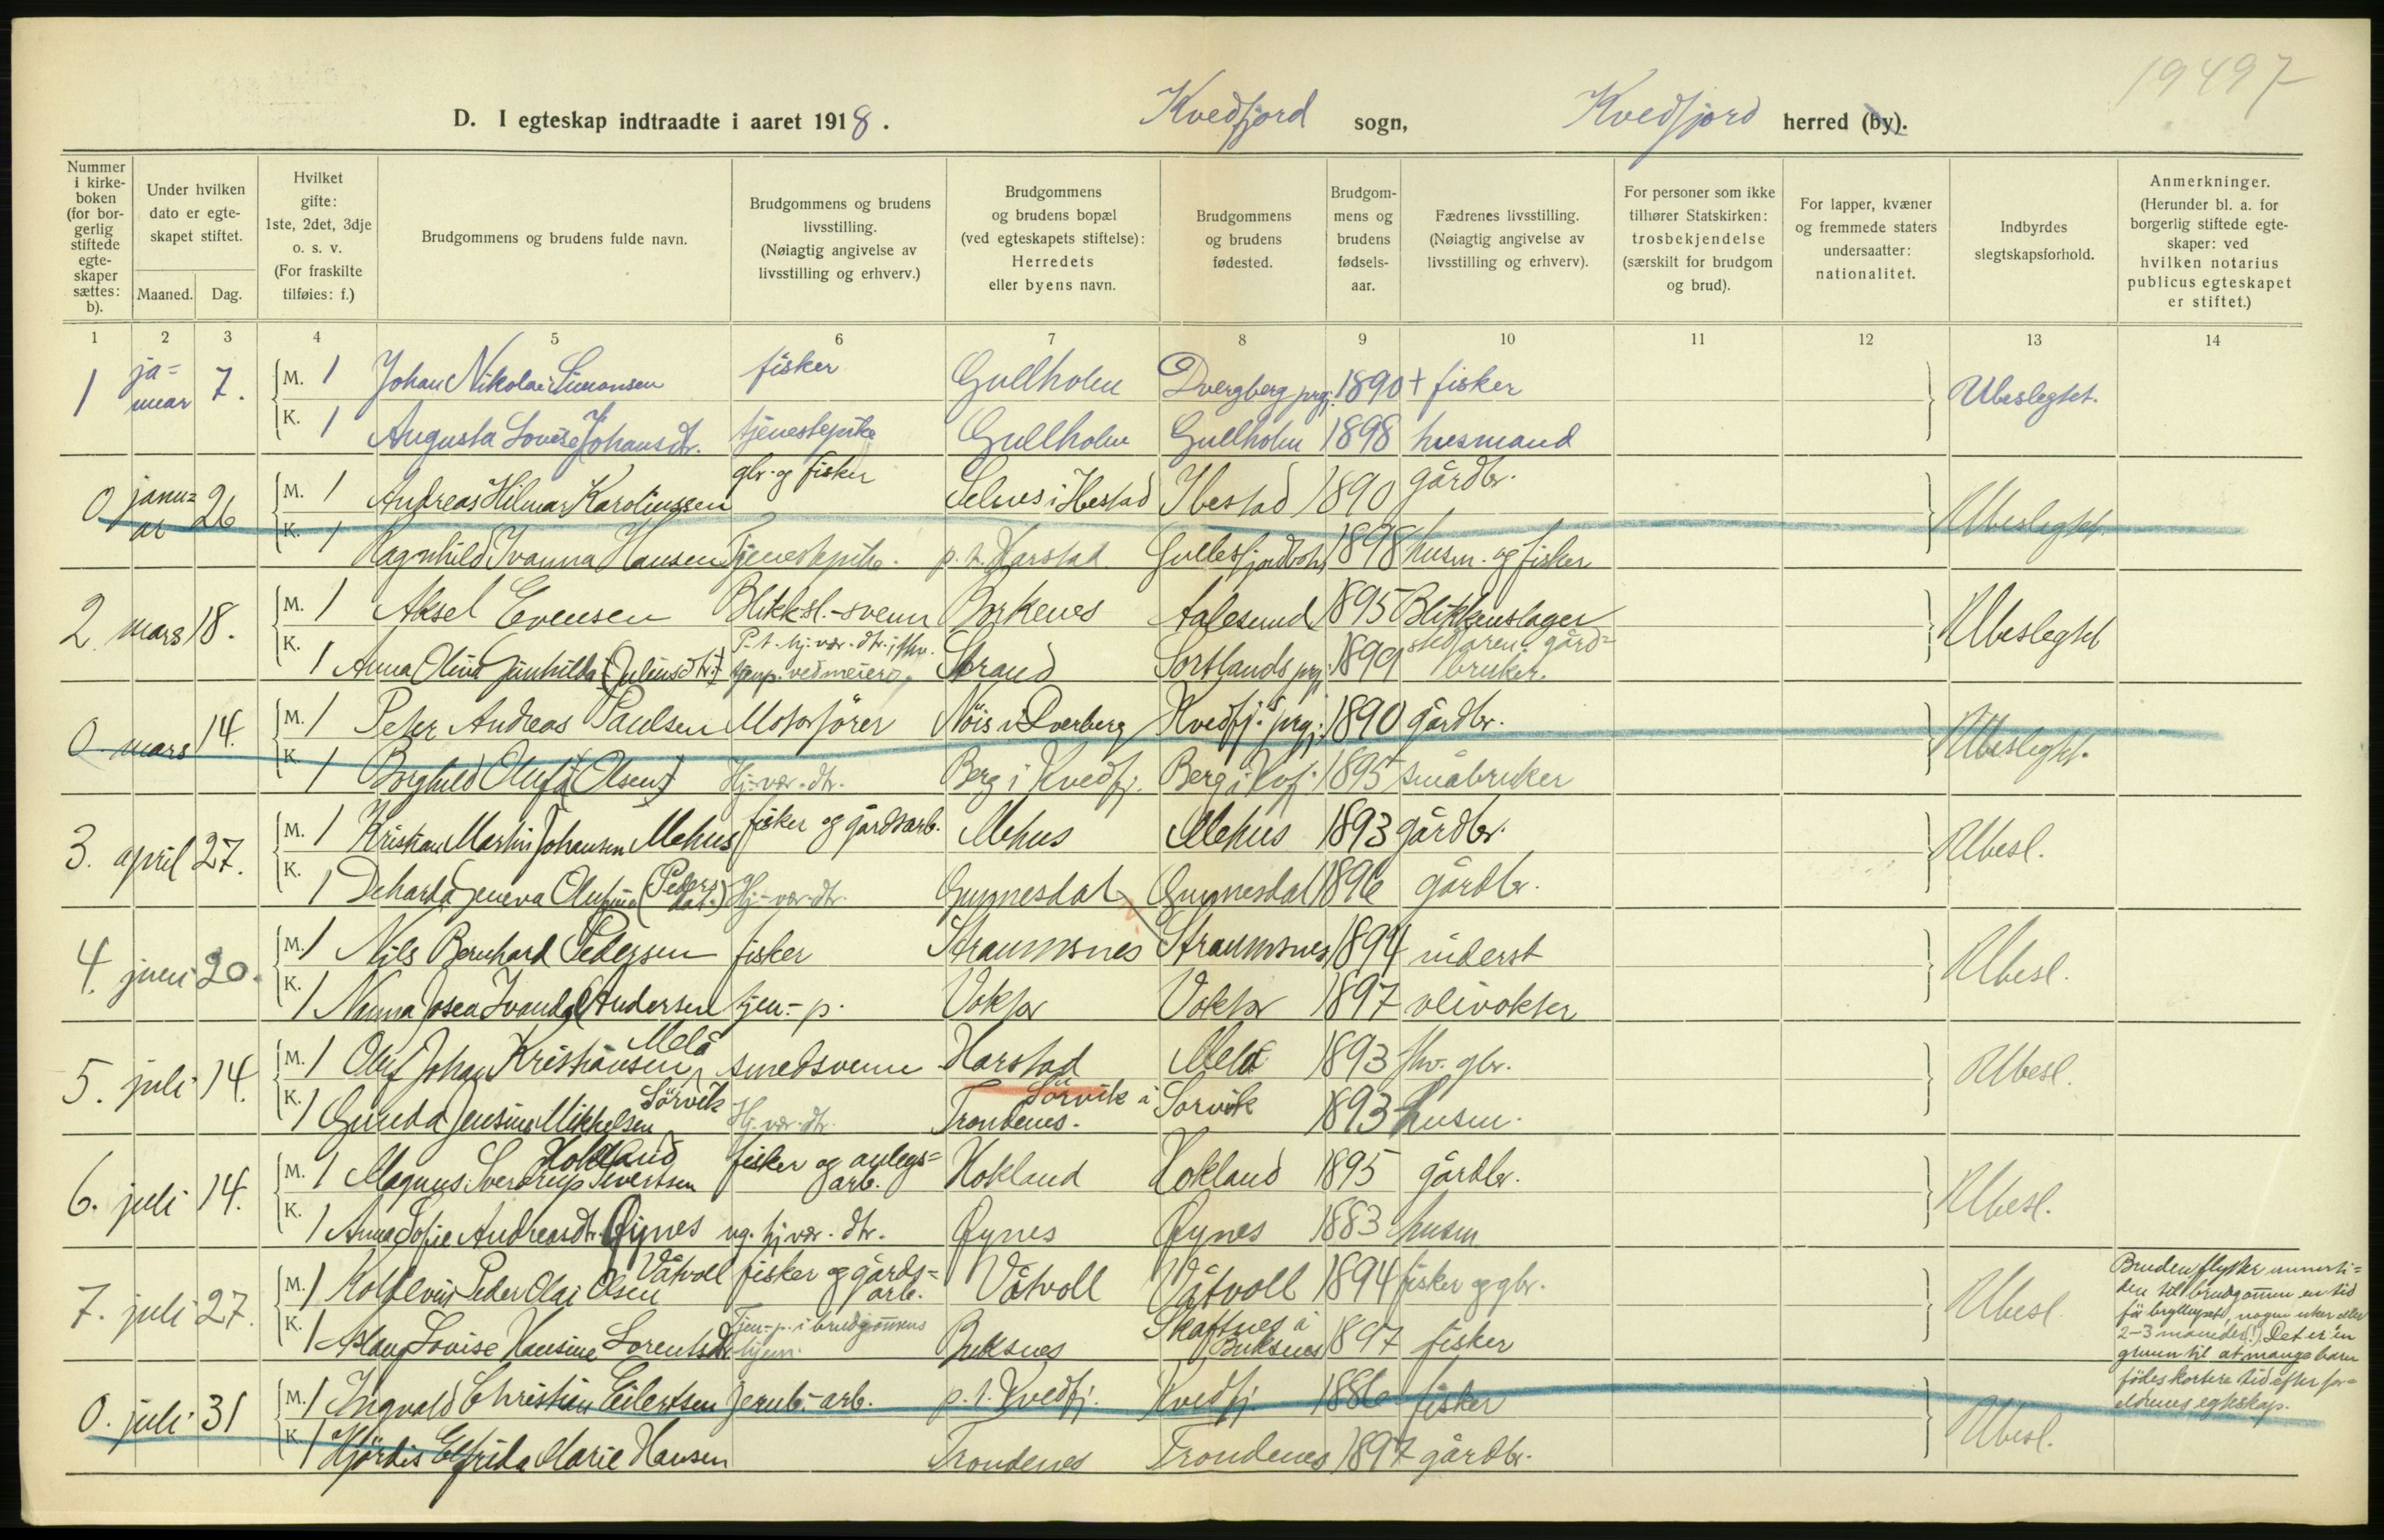 19497
D. I egteskap indtraadte i aaret 1918. Kvedfjord sogn, Kvedfjord herred (by).
Nummer i kirke-boken (for bor-gerlig stiftede egte-skaper sættes: b).
Under hvilken dato er egte-skapet stiftet.
Maaned. Dag.
Hvilket gifte: 1ste, 2det, 3dje o. s. v. (For fraskilte tilføies: f.)
Brudgommens og brudens fulde navn.
Brudgommens og brudens livsstilling. (Nøiagtig angivelse av livsstilling og erhverv.)
Brudgommens og brudens bopæl (ved egteskapets stiftelse): Herredets eller byens navn.
Brudgommens og brudens fødested.
Brudgom-mens og brudens fødsels-aar.
Fædrenes livsstilling. (Nøiagtig angivelse av livsstilling og erhverv).
For personer som ikke tilhører Statskirken: trosbekjendelse (særskilt for brudgom og brud).
For lapper, kvæner og fremmede staters undersaatter: nationalitet.
Indbyrdes slegtskapsforhold.
Anmerkninger. (Herunder bl. a. for borgerlig stiftede egte-skaper: ved hvilken notarius publicus egteskapet er stiftet.)
1 2 3 4 5 6 7 8 9 10 11 12 13 14
1 ja=nuar 7. M. 1 Johan Nikolai Simonsen fisker Gullholm Dvergberg prgj. 1890 + fisker Ubeslegtet.
K. 1 Augusta Lovise Johansdtr. tjenestepike Gullholm Gullholm 1898 husmand
0 janu=ar 26 M. 1 Andreas Hilmar Karolinssen gbr. og fisker Selnes i Ibestad Ibestad 1890 gårdbr. Ubeslegtet.
K. 1 Ragnhild Ivanna Hansen Tjenestepike. p. t. Harstad. Gullesfjordbotn 1898 husm. og fisker
2. mars 18. M. 1 Aksel Evensen Blikksl.-svenn Borkenes Aalesund 1895 Blikkenslager Ubeslegtet
K. 1 Anna Olina Gunhilda (Juliusdtr.) P. t. hj. vær. dtr. i fhv. tjenp. ved meieri Strand Sortlands prgj. 1899 stedfaren: gård=bruker.
0 mars 14. M. 1 Peter Andreas Paulsen Motorfører Nöis i Dverberg Kvedfj. prgj. 1890 gårdbr. Ubeslegtet.
K. 1 Borghild Olufa (Olsen) Hj.-vær. dtr. Berg i Kvedfj. Berg i Kvfj. 1895 småbruker
3. april 27. M. 1 Kristian Martin Johansen Mehus fisker og gårdsarb. Mehus Mehus 1893 gårdbr. Ubesl.
K. 1 Deharda Jeneva Olufine (Peders dat.) Hj.-vær. dtr. Gunnesdal Gunnesdal 1896 gårdbr.
4. juni 20. M. 1 Nils Bernhard Pedersen fisker Straumsnes Straumsnes 1894 inderst Ubesl.
K. 1 Nanna Josea Ivanda Andersen tjen.-p. Voktor Voktor 1897 veivokter
5. juli 14. M. 1 Oluf Johan Kristiansen Melå smedsvenn Harstad Melå 1893 fhv. gbr. Ubesl.
K. 1 Gunda Jensine Mikkelsen Sörvik Hj. vær. dtr. Sörvik i Trondenes. Sörvik 1893 husm.
6. juli 14. M. 1 Magnus Sverdrup Sivertsen Hokland fisker og anlegs=arb. Hokland Hokland 1895 gårdbr. Ubesl.
K. 1 Anna Sofie Andreasdtr. Øynes ug. hj. vær. dtr. Øynes Øynes 1883 husm
7. juli 27. M. 1 Peder Olai Olsen Våtvoll fisker og gårds=arb. Våtvoll Våtvoll 1894 fisker og gbr. Ubesl.
K. 1 Aslaug Lovise Hansine Lorentsdtr. Tjen.-p. i brudgommens hjem. Buksnes Skaftnes i Buksnes 1897 fisker
Bruden flytter imidler=ti=den til brudgommen en tid för bryllupet, nogen uker eller 2-3 måneder (!). Det er en grunn til at mange barn födes kortere tid efter for=eldrenes egteskap.
0. juli 31 M. 1 Ingvald Christian Eilertsen Jernb.-arb. p. t. Kvedfj. Kvedfj. 1886 fisker Ubesl.
K. 1 Hjørdis Elfrida Marie Hansen Trondenes Trondenes 1897 gårdbr.